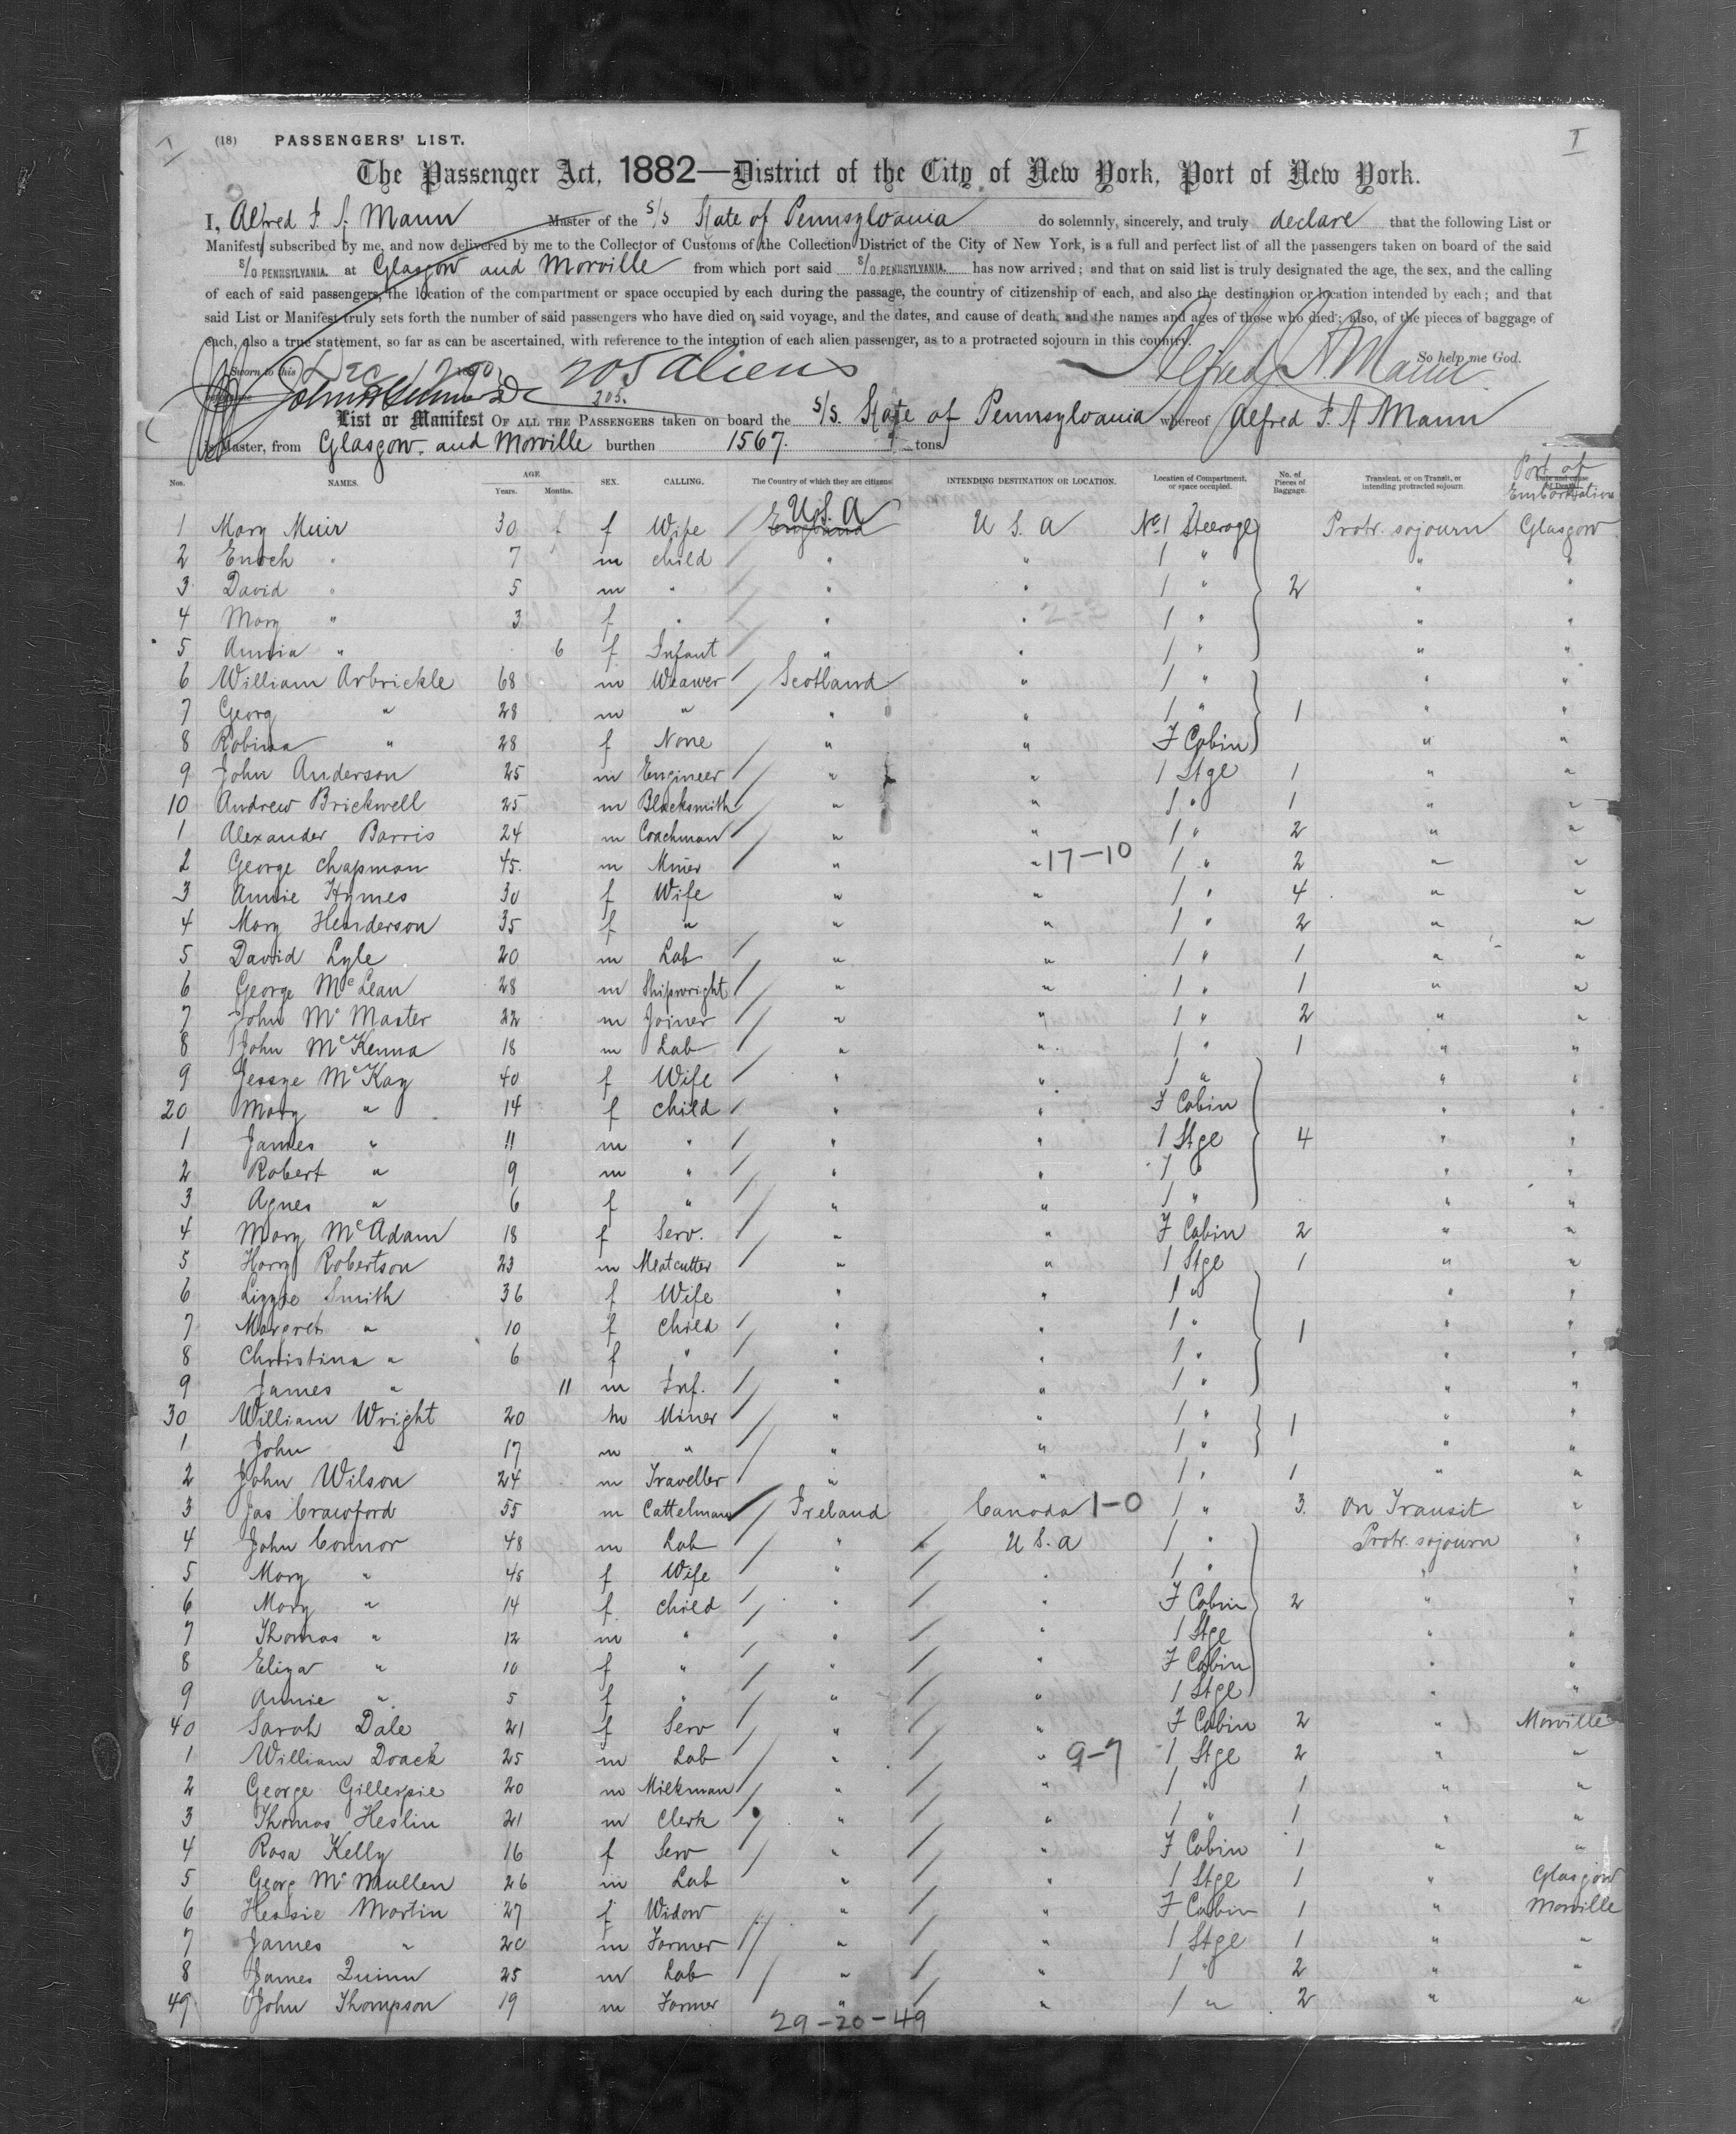 (18) PASSENGERS' LIST. I
The Passenger Act, 1882—District of the City of New York, Port of New York.
I, Alfred F. A. Mann Master of the S/S State of Pennsylvania do solemnly, sincerely, and truly declare that the following List or
Manifest, subscribed by me, and now delivered by me to the Collector of Customs of the Collection District of the City of New York, is a full and perfect list of all the passengers taken on board of the said
S/S PENNSYLVANIA. at Glasgow and Morville from which port said S/S PENNSYLVANIA. has now arrived; and that on said list is truly designated the age, the sex, and the calling
of each of said passengers, the location of the compartment or space occupied by each during the passage, the country of citizenship of each, and also the destination or location intended by each; and that
said List or Manifest truly sets forth the number of said passengers who have died on said voyage, and the dates, and cause of death, and the names and ages of those who died; also, of the pieces of baggage of
each, also a true statement, so far as can be ascertained, with reference to the intention of each alien passenger, as to a protracted sojourn in this country.
So help me God.
Sworn to this Dec 1890 205 aliens Alfred F. A. Mann
205.
List or Manifest OF ALL THE PASSENGERS taken on board the S/S. State of Pennsylvania whereof Alfred F. A Mann
is Master, from Glasgow. and Morville burthen 1567. tons
Port of Embarkation
Nos. NAMES. AGE Years. Months. SEX. CALLING. The Country of which they are citizens INTENDING DESTINATION OR LOCATION. Location of Compartment, or space occupied. No. of Pieces of Baggage. Transient, or on Transit, or intending protracted sojourn. Date and cause of Death.
1 Mary Muir 30 f Wife England U.S.A U S. A No 1 Steerage Protr. sojourn Glasgow
2 Enoch " 7 m child " " 1 " " "
3 David " 5 m " " " 1 " 2 " "
4 Mary " 3 f " " " 2-3 1 " " "
5 Annia " 6 f Infant " " 1 " " "
6 William Arbrickle 68 m Weawer Scotland " 1 " " "
7 Georg " 28 m " " " 1 " 1 " "
8 Robina " 28 f None " " F Cabin " "
9 John Anderson 25 m Engineer " " 1 Stge 1 " "
10 Andrew Brickwell 25 m Blacksmith " " 1 " 1 " "
1 Alexander Barris 24 m Coachman " " 1 " 2 " "
2 George Chapman 45. m Miner " " 17-10 1 " 2 " "
3 Annie Hymes 30 f Wife " " 1 " 4 " "
4 Mary Henderson 35 f " " " 1 " 2 " "
5 David Lyle 20 m Lab " " 1 " 1 " "
6 George McLean 28 m Shipwright " " 1 " 1 " "
7 John McMaster 22 m Joiner " " 1 " 2 " "
8 John McKenna 18 m Lab " " 1 " 1 " "
9 Jessye McKay 40 f Wife " " 1 " " "
20 Mary " 14 f child " " F Cabin " "
1 James " 11 m " " " 1 Stge 4 " "
2 Robert " 9 m " " " 1 " " "
3 Agnes " 6 f " " " 1 " " "
4 Mary McAdam 18 f Serv. " " F Cabin 2 " "
5 Harry Robertson 23 m Meatcutter " " 1 Stge 1 " "
6 Lizzie Smith 36 f Wife " " 1 " " "
7 Margreth " 10 f child " " 1 " 1 " "
8 Christina " 6 f " " " 1 " " "
9 James " 11 m Inf. " " 1 " " "
30 William Wright 20 m Miner " " 1 " 1 " "
1 John " 17 m " " " 1 " " "
2 John Wilson 24 m Traveller " " 1 " 1 " "
3 Jas Crawford 55 m Cattelman Ireland Canada 1-0 1 " 3. On Transit "
4 John Connor 48 m Lab " U S. a 1 " Protr. sojourn "
5 Mary " 45 f Wife " " 1 " " "
6 Mary " 14 f child " " F Cabin 2 " "
7 Thomas " 12 m " " " 1 Stge " "
8 Eliza " 10 f " " " F Cabin " "
9 Annie " 5 f " " " 1 Stge " "
40 Sarah Dale 21 f Serv " " F Cabin 2 " Morville
1 William Doack 25 m Lab " " 9-7 1 Stge 2 " "
2 George Gillespie 20 m Milkman " " 1 " 1 " "
3 Thomas Heslin 21 m Clerk " " 1 " 1 " "
4 Rosa Kelly 16 f Serv " " F Cabin 1 " "
5 Georg McMullen 26 m Lab " " 1 Stge 1 " Glasgow
6 Hessie Martin 27 f Widow " " F Cabin 1 " Morville
7 James " 20 m Farmer " " 1 Stge 1 " "
8 James Quinn 25 m Lab " " 1 " 2 " "
49 John Thompson 19 m Farmer " " 1 " 2 " "
29-20-49